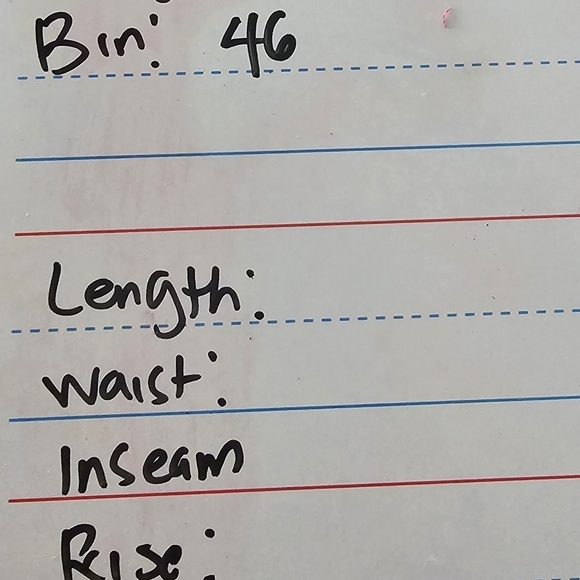 Bin: 46
Length:
Waist:
Inseam
Rise: